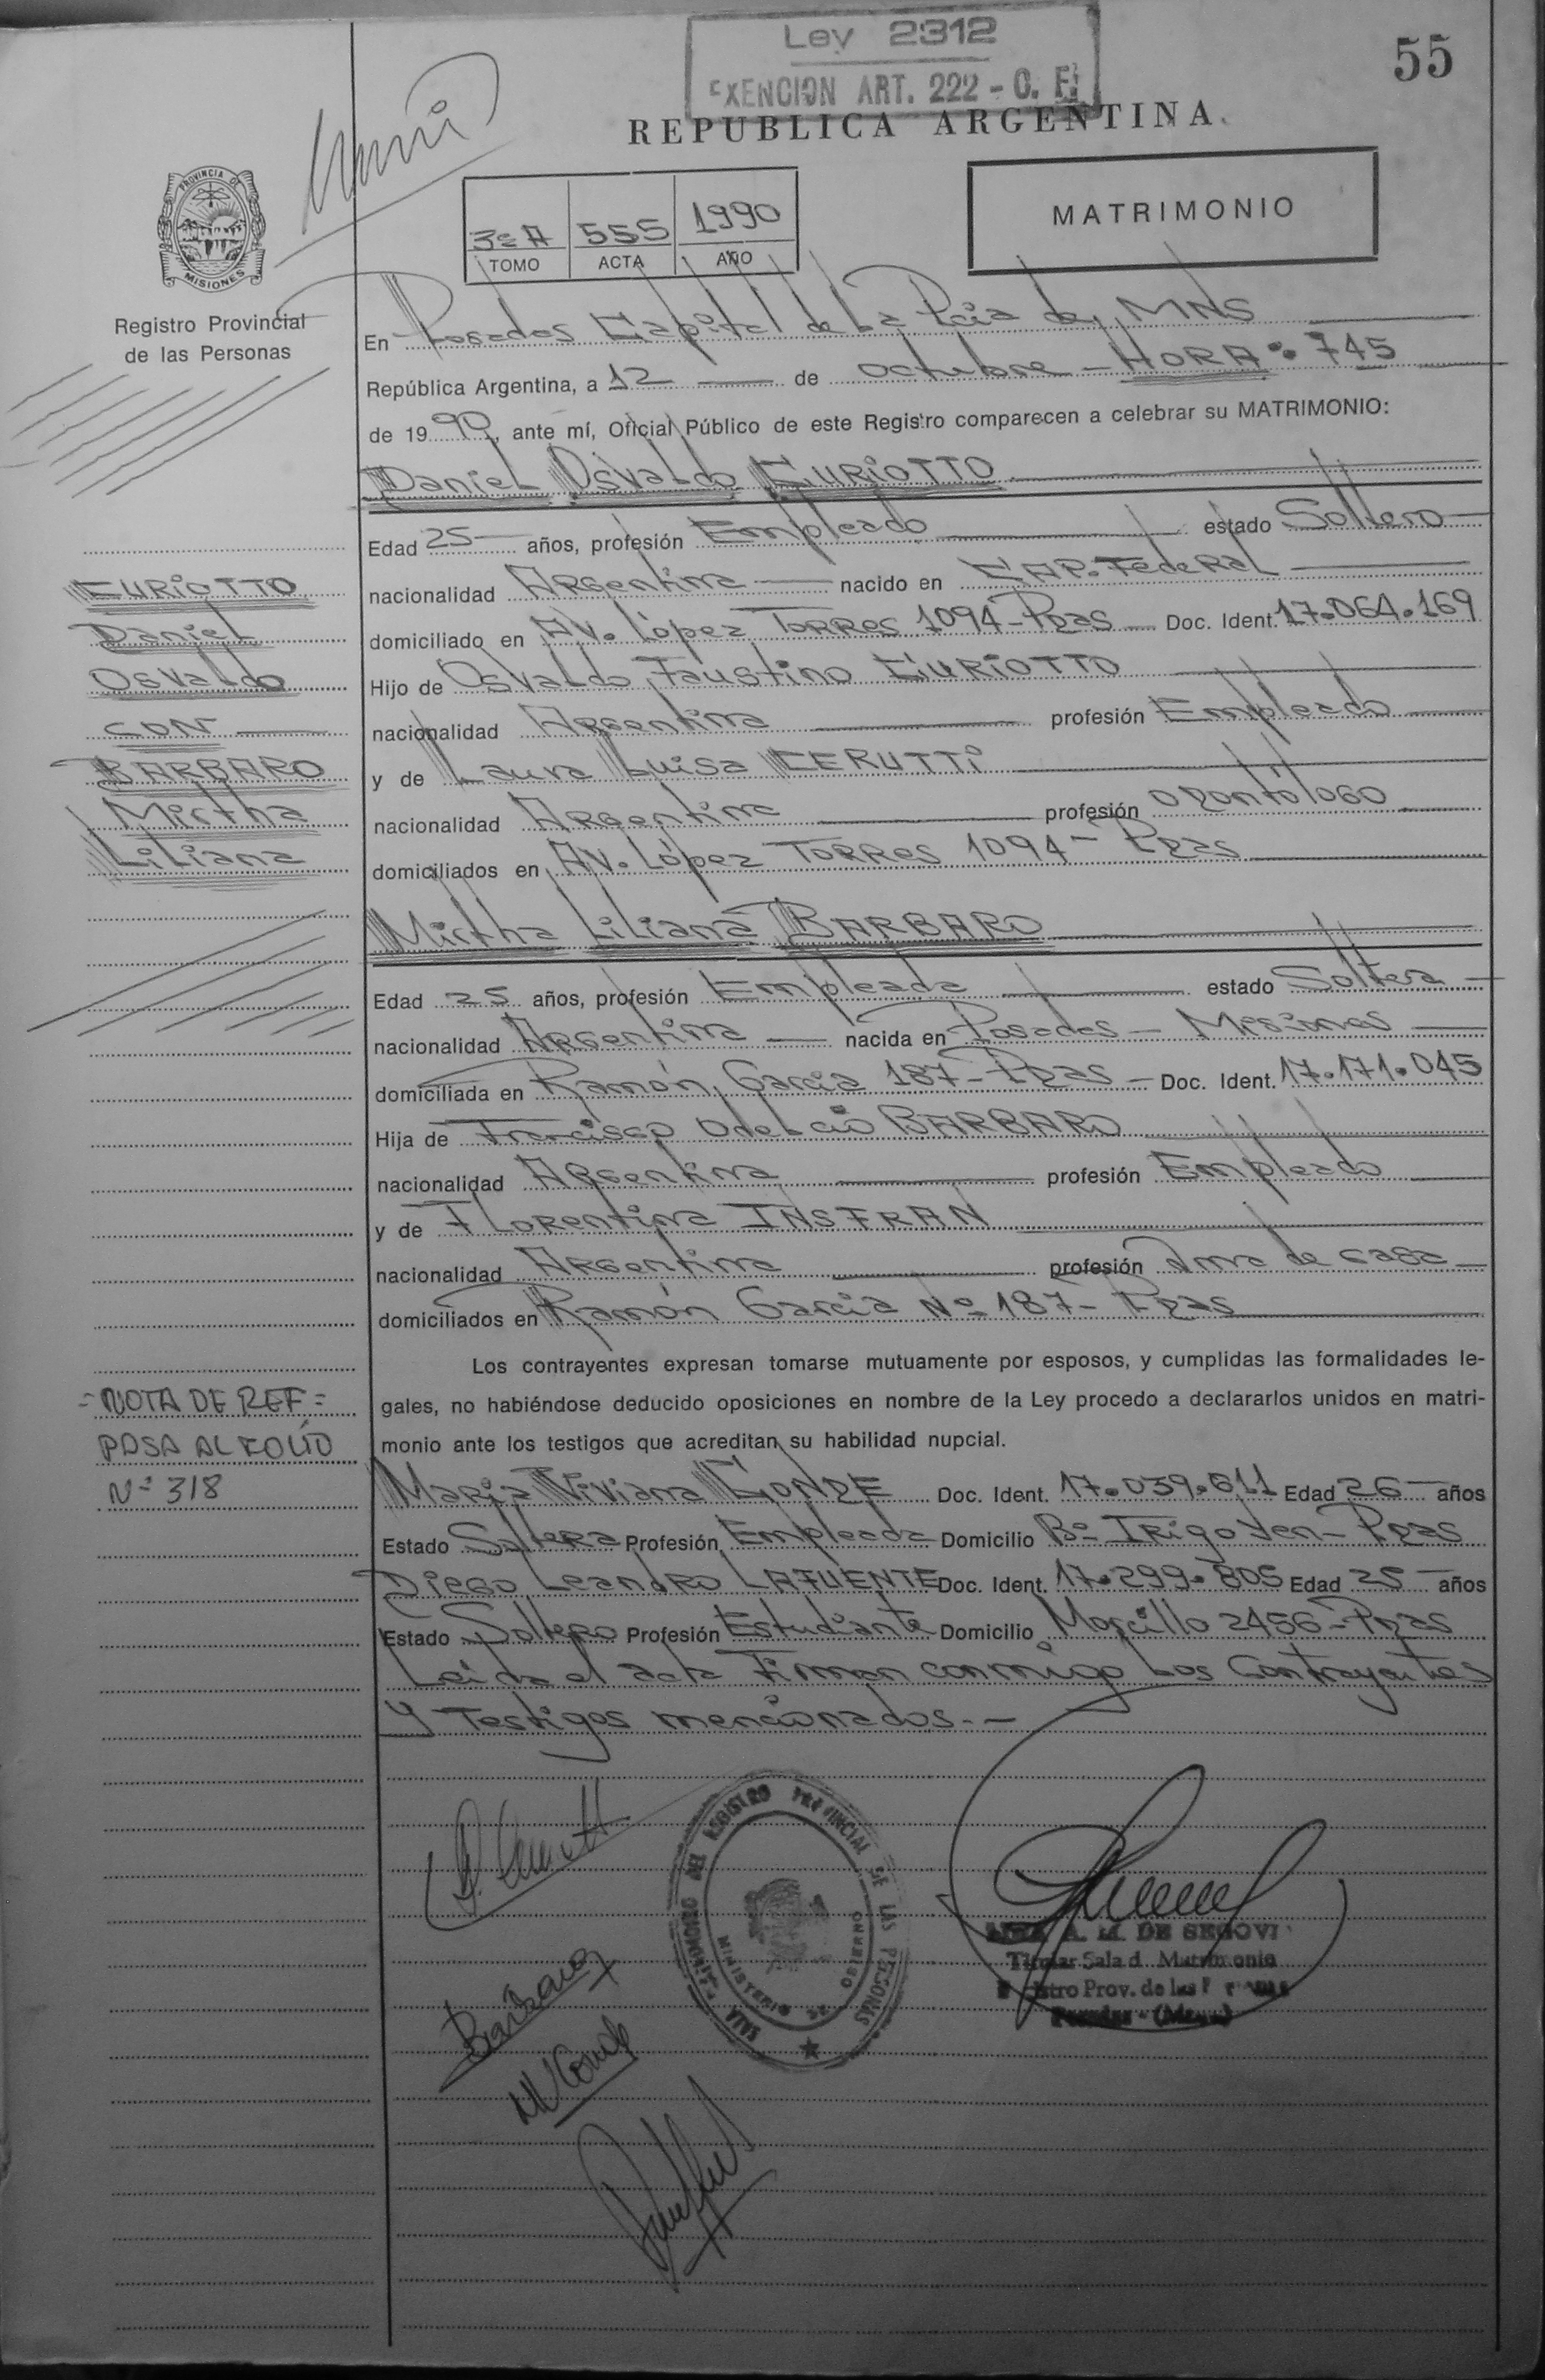 Ley 2312
EXENCION ART. 222 - C. F.
55
REPUBLICA ARGENTINA
PROVINCIA DE
MISIONES
Registro Provincial
de las Personas
3º A 555 1990
TOMO ACTA AÑO
MATRIMONIO
En Posadas Capital de La Pcia de MNS
República Argentina, a 12 de octubre - HORA: 745
de 1990, ante mí, Oficial Público de este Registro comparecen a celebrar su MATRIMONIO:
Daniel Osvaldo CURIOTTO
Edad 25 años, profesión Empleado estado Soltero
nacionalidad Argentina nacido en CAP. Federal
domiciliado en AV. López TORRES 1094 - Pdas Doc. Ident. 17.064.169
Hijo de Osvaldo Faustino CURIOTTO
nacionalidad Argentina profesión Empleado
y de Laura Luisa CERUTTI
nacionalidad Argentina profesión Odontólogo
domiciliados en AV. López TORRES 1094 - Pdas
Mirtha Liliana BARBARO
Edad 25 años, profesión Empleada estado Soltera
nacionalidad Argentina nacida en Posadas - Misiones
domiciliada en Ramón García 187 - Pdas - Doc. Ident. 17.171.045
Hija de Francisco Odelcio BARBARO
nacionalidad Argentina profesión Empleado
y de Florentina INSFRAN
nacionalidad Argentina profesión Ama de casa
domiciliados en Ramón García Nº 187 - Pdas
CURIOTTO
Daniel
Osvaldo
CON
BARBARO
Mirtha
Liliana
Los contrayentes expresan tomarse mutuamente por esposos, y cumplidas las formalidades le-
gales, no habiéndose deducido oposiciones en nombre de la Ley procedo a declararlos unidos en matri-
monio ante los testigos que acreditan su habilidad nupcial.
= NOTA DE REF =
PASA AL FOLIO
Nº 318
Maria Viviana CONDE Doc. Ident. 17.039.611 Edad 26 años
Estado Soltera Profesión Empleada Domicilio Bº IRIGOYEN - Pdas
Diego Leandro LAFUENTE Doc. Ident. 17.299.805 Edad 25 años
Estado Soltero Profesión Estudiante Domicilio Morcillo 2456 - Pdas
Leída el acta Firman conmigo Los Contrayentes
Y Testigos mencionados.-
REGISTRO PROVINCIAL DE LAS PERSONAS
MINISTERIO DE GOBIERNO
A. M. DE SEGOVI
Titular Sala d Matrimonio
stro Prov. de las
Posadas - (Mnes)
Barbaro
MVConde